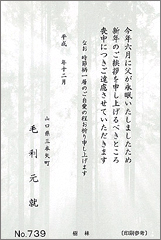 今年六月に父が永眠いたしましたため
新年のご挨拶を申し上げるべきところ
喪中につきご遠慮させていただきます
なお 時節柄一層のご自愛の程お祈り申し上げます
平成 年十二月
山口県三本矢町
毛利元就
No.739
樹林
[印刷参考]